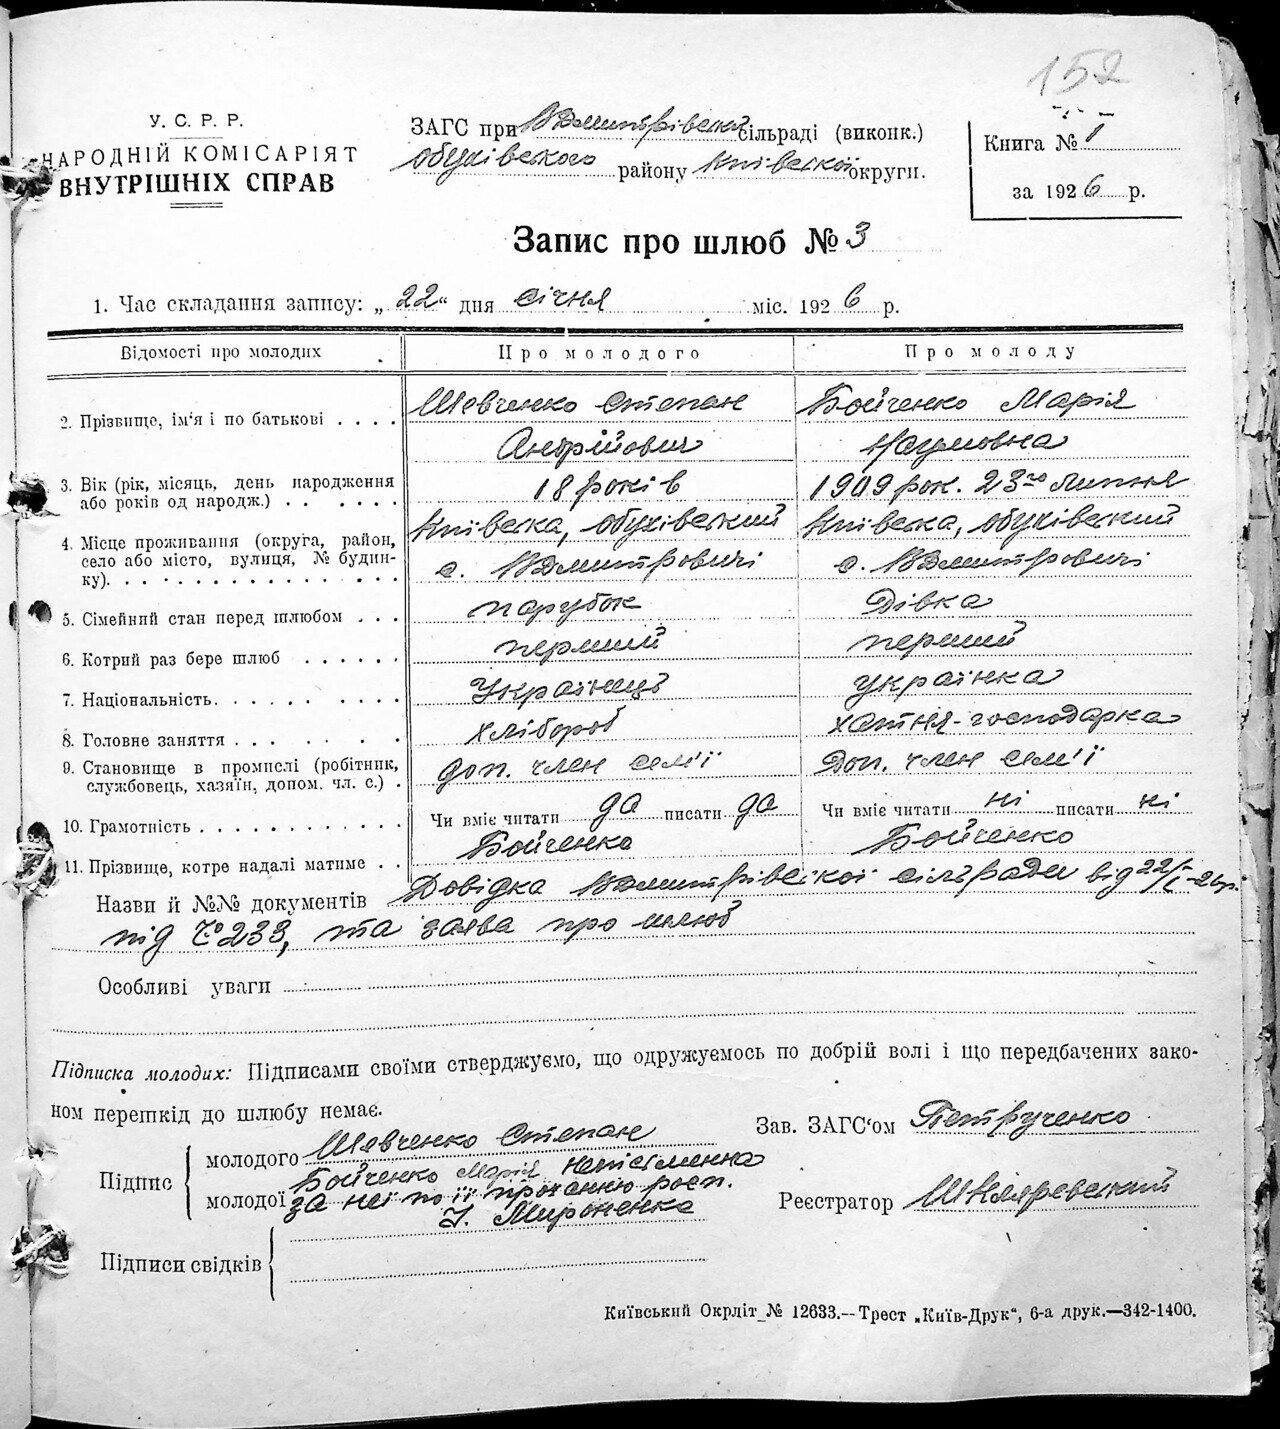 152
У. С. Р. Р.
НАРОДНІЙ КОМІСАРІЯТ
ВНУТРІШНІХ СПРАВ
ЗАГС при ВДмитрівській сільраді (виконк.)
Обухівського району Київської округи.
Книга № 1
за 1926 р.
Запис про шлюб № 3
1. Час складання запису: „22“ дня січня міс. 1926 р.
Відомості про молодих Про молодого Про молоду
2. Прізвище, ім‘я і по батькові . . . . Шевченко Степан Андрійович Бойченко Марія Наумовна
3. Вік (рік, місяць, день народження або років од народж.) . . . . . . 18 років 1909 рок. 23го липня
4. Місце проживання (округа, район, село або місто, вулиця, № будинку). Київська, Обухівський с. ВДмитровичі Київська, Обухівський с. ВДмитровичі
5. Сімейний стан перед шлюбом . . . парубок Дівка
6. Котрий раз бере шлюб . . . . . . перший перший
7. Національність. . . . . . . . . . Українець українка
8. Головне заняття . . . . . . . хлібороб хатня-господарка
9. Становище в промислі (робітник, службовець, хазяїн, допом. чл. с.) . доп. член сем'ї Доп. член сем'ї
10. Грамотність . . . . . . . . . . . . Чи вміє читати да писати да Чи вміє читати ні писати ні
11. Прізвище, котре надалі матиме . . Бойченко Бойченко
Назви й №№ документів Довідка ВДмитрівської сільради від 22/I-26р.
під № 233, та заява про шлюб
Особливі уваги
Підписка молодих: Підписами своїми стверджуємо, що одружуємось по добрій волі і що передбачених зако-
ном перешкід до шлюбу немає.
Зав. ЗАГС‘ом Петрученко
Підпис молодого Шевченко Степан
молодої Бойченко Марія неписьменна
за неї по її проханню росп.
І. Мироненко
Реєстратор Шкляревський
Підписи свідків
Київський Окрліт № 12633.—Трест „Київ-Друк“, 6-а друк.—342-1400.